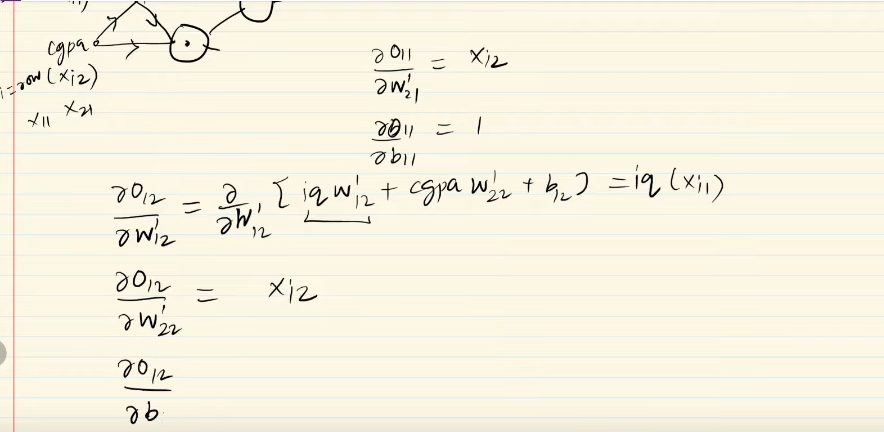 cgpa
i = row (xi2)
x11 x21
∂O11/∂w¹21 = xi2
∂O11/∂b11 = 1
∂O12/∂w¹12 = ∂/∂w¹12 [ iq w¹12 + cgpa w¹22 + b12 ] = iq (xi1)
∂O12/∂w¹22 = xi2
∂O12/∂b